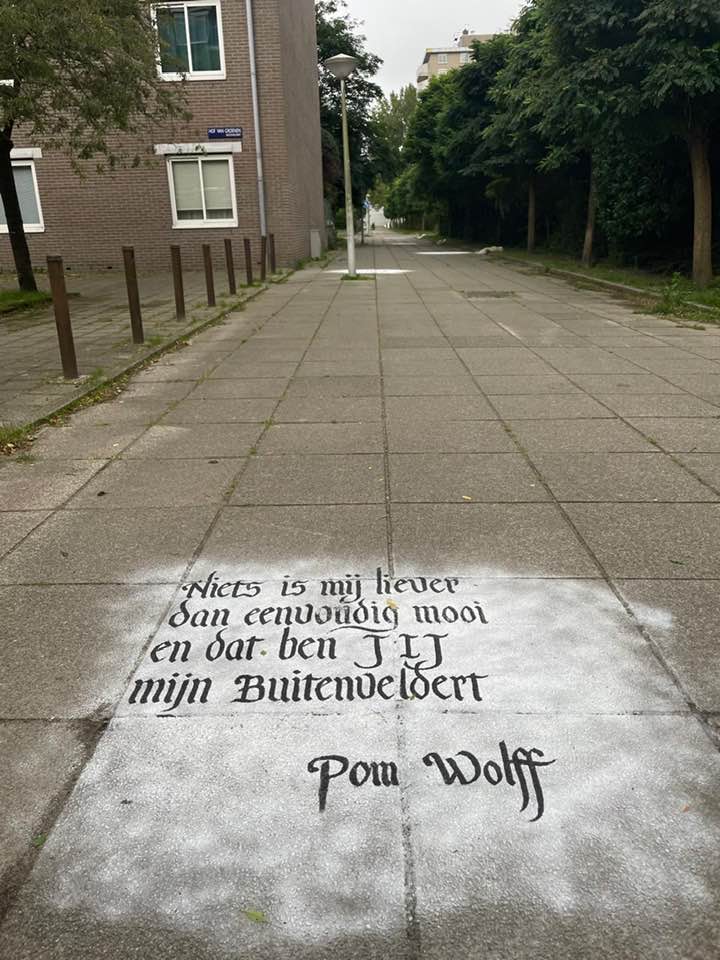 HOF VAN GROENEN
Niets is mij liever
dan eenvoudig mooi
en dat ben JIJ
mijn Buitenveldert
Pom Wolff